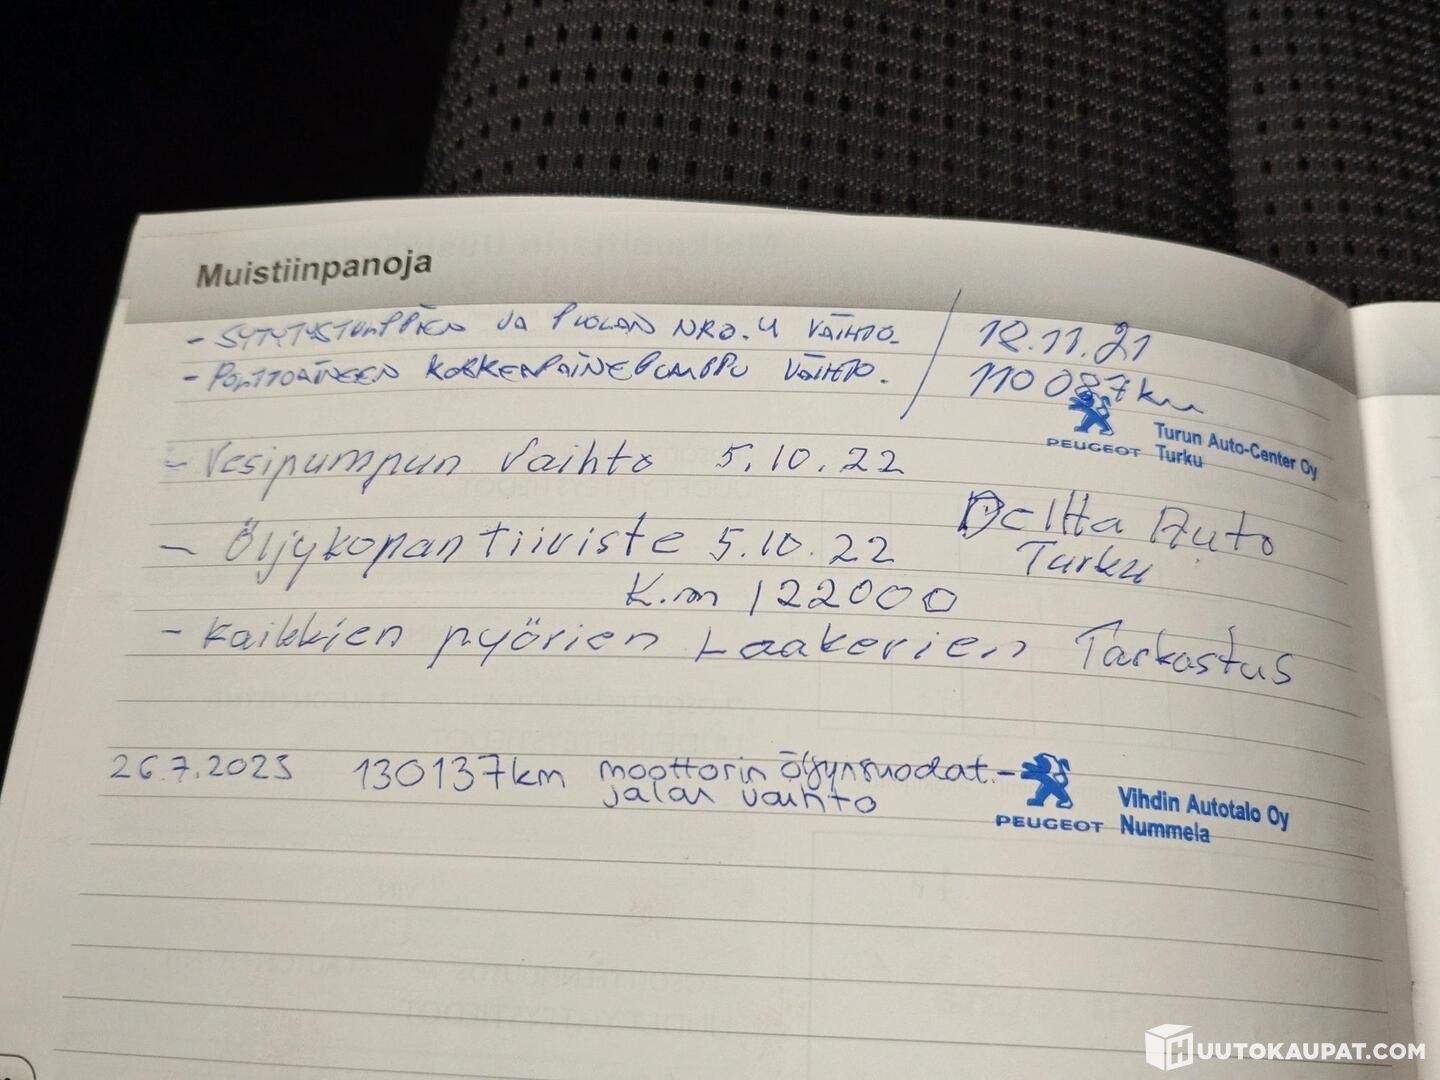 Muistiinpanoja
- SYTYTYSTULPPIEN JA PUOLAN NRO. 4 VAIHTO.
- POLTTOAINEEN KORKEAPAINEPUMPPU VAIHTO.
12.11.21
110 087 km
PEUGEOT Turun Auto-Center Oy
Turku
- Vesipumpun Vaihto 5.10.22
Deltta Auto
Turku
- Öljykopan tiiviste 5.10.22
K.m 122000
- Kaikkien pyörien Laakerien Tarkastus
26.7.2023 130137km moottorin öljynsuodat.-
jalan vaihto
PEUGEOT Vihdin Autotalo Oy
Nummela
HUUTOKAUPAT.COM